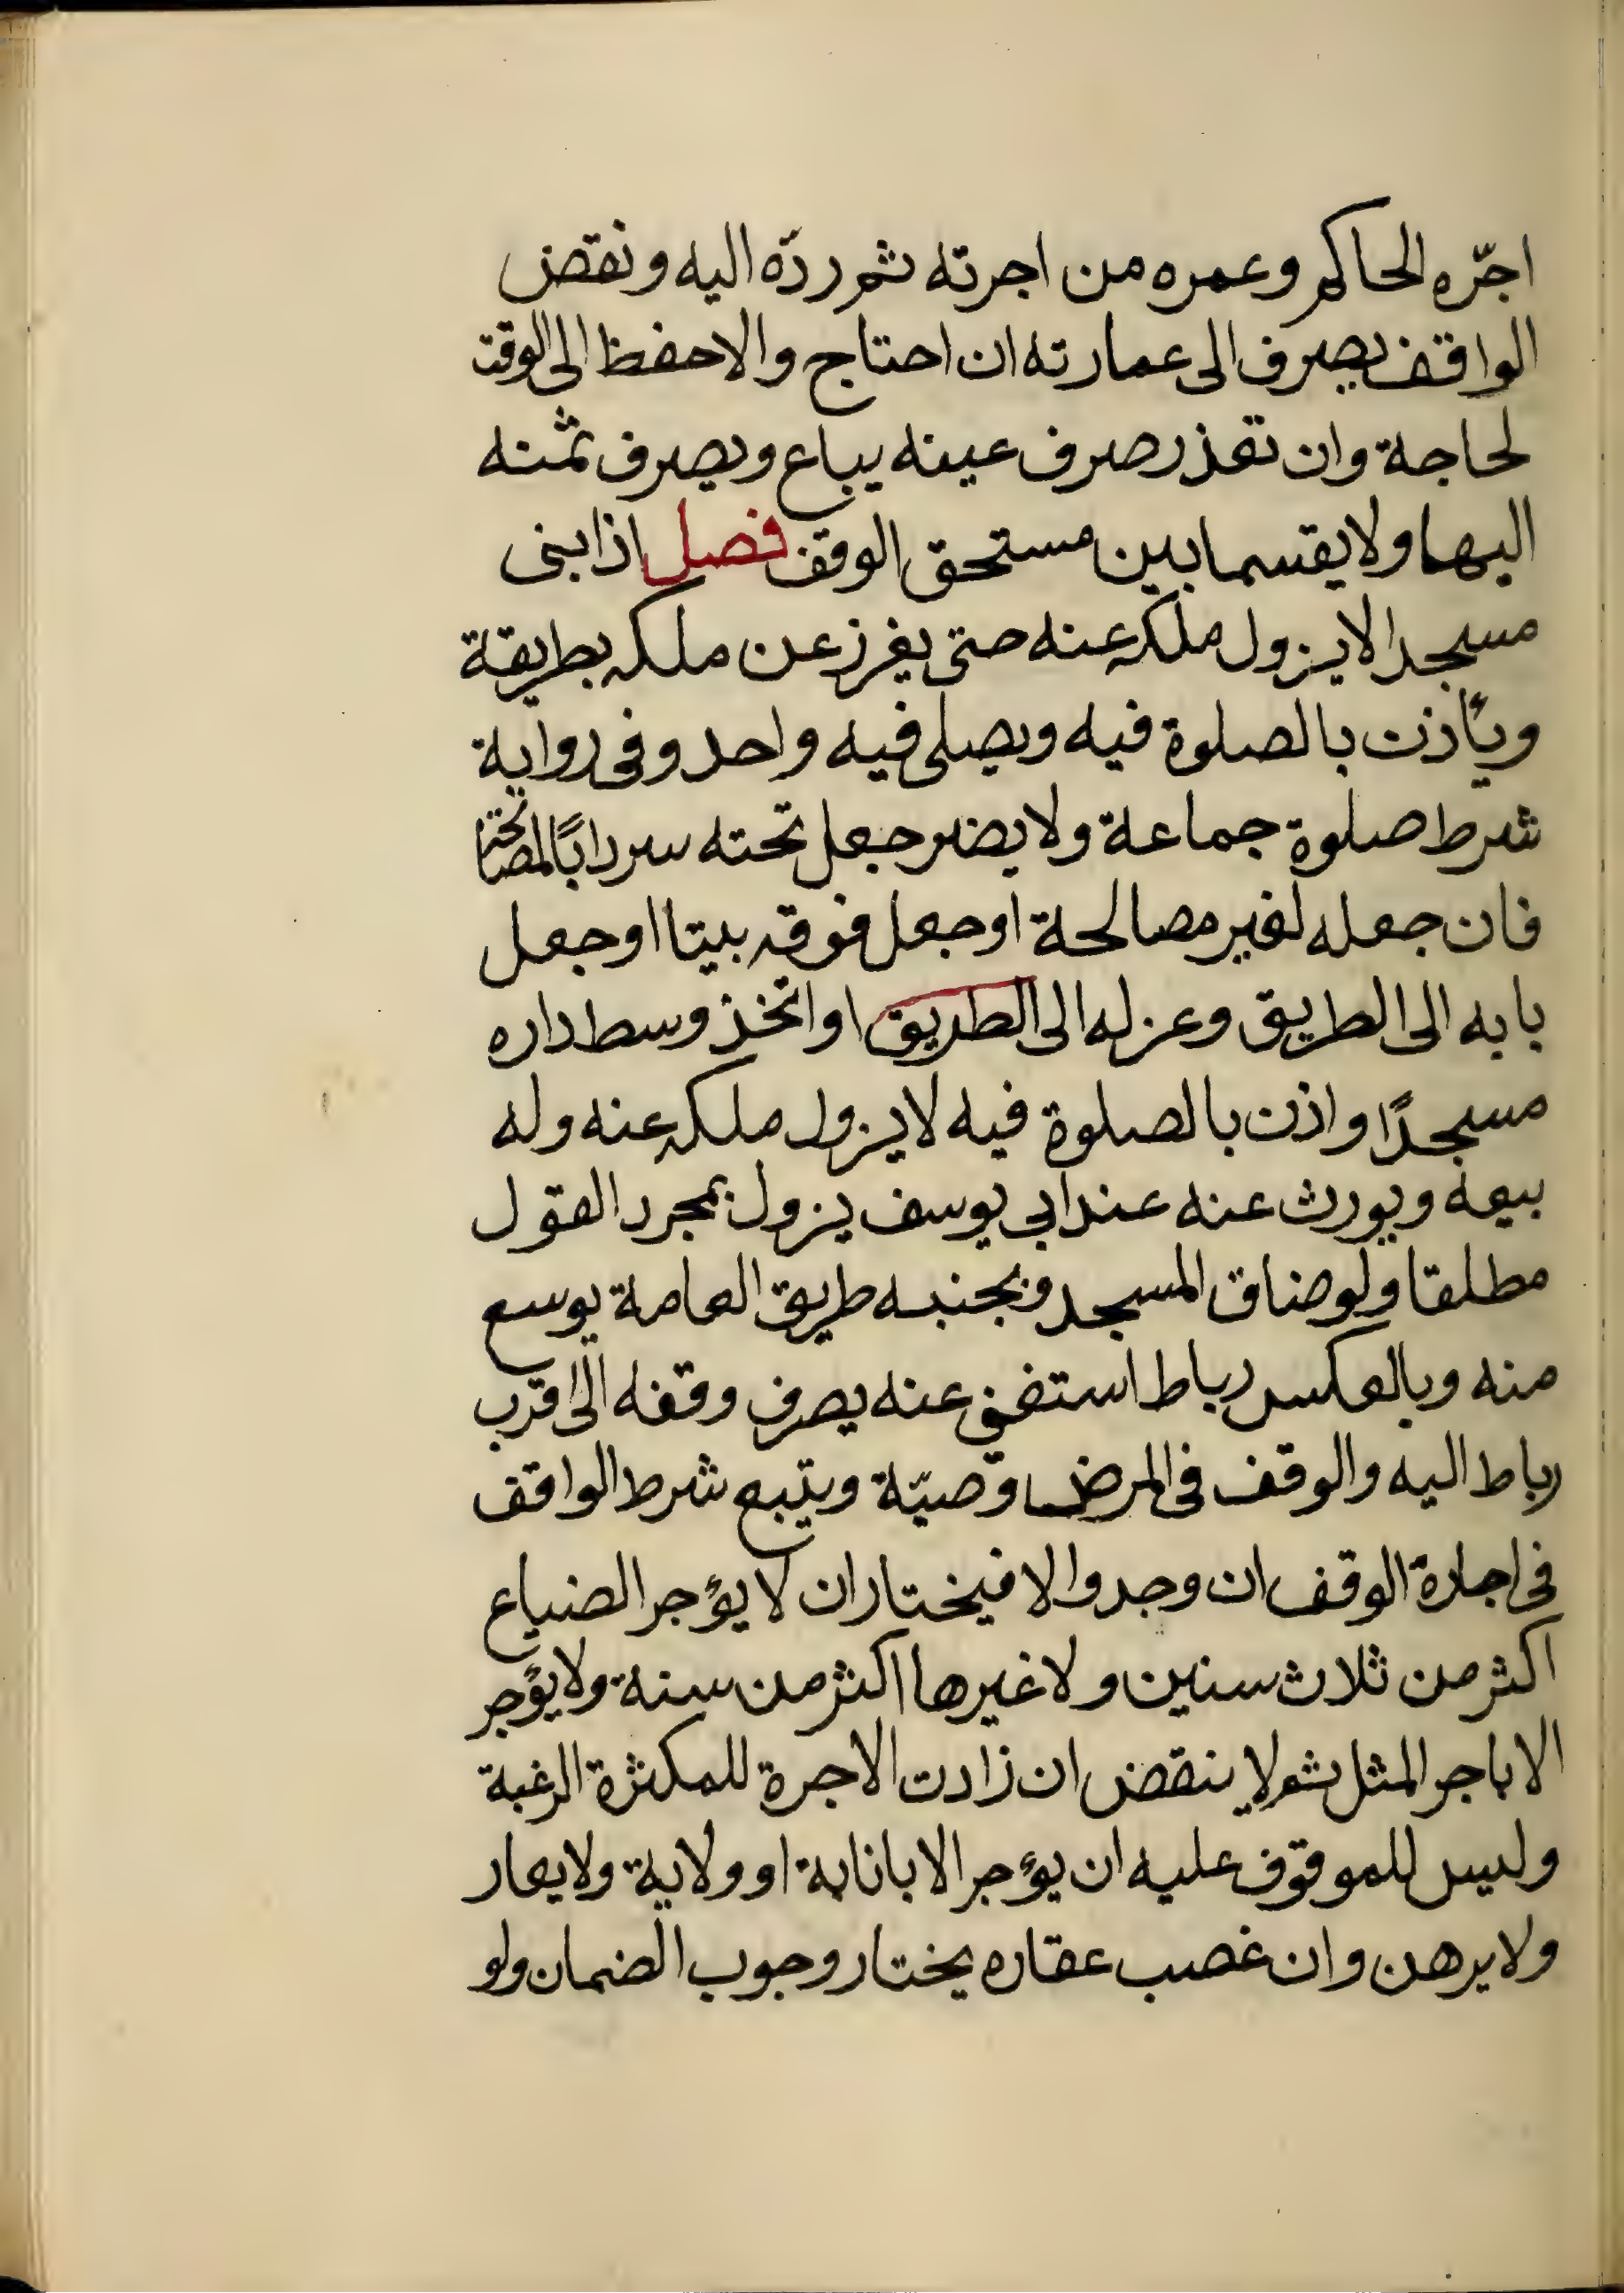 اجّره الحاكم وعمره من اجرته ثم ردّه اليه ونقض
الواقف يصرف الى عمارته ان احتاج والا حفظ الى الوقت
لحاجة وان تعذر صرف عينه يباع ويصرف ثمنه
اليها ولا يقسما بين مستحق الوقف فصل اذا بنى
مسجدا لا يزول ملكه عنه حتى يفرز عن ملكه بطريقة
ويأذن بالصلوة فيه ويصلى فيه واحد وفى رواية
شرط صلوة جماعة ولا يضر جعل تحته سردابًا لمصالحة
فان جعله لغير مصالحة او جعل فوقه بيتا او جعل
بابه الى الطريق وعزله الى الطريق او اتخذ وسط داره
مسجدًا واذن بالصلوة فيه لا يزول ملكه عنه وله
بيعه ويورث عنه عند ابي يوسف يزول بمجرد القول
مطلقا ولو ضاق المسجد وبجنبه طريق العامة يوسع
منه وبالعكس رباط استغنى عنه يصرف وقفه الى اقرب
رباط اليه والوقف فى المرض وصيّة ويتبع شرط الواقف
فى اجارة الوقف ان وجد والا فيختار ان لا يؤجر الضياع
اكثر من ثلاث سنين ولا غيرها اكثر من سنة ولا يؤجر
الا باجر المثل ثم لا ينقض ان زادت الاجرة للمكثرة الرغبة
وليس للموقوف عليه ان يؤجر الا بانابة او ولاية ولا يعار
ولا يرهن وان غصب عقاره يختار وجوب الضمان ولو